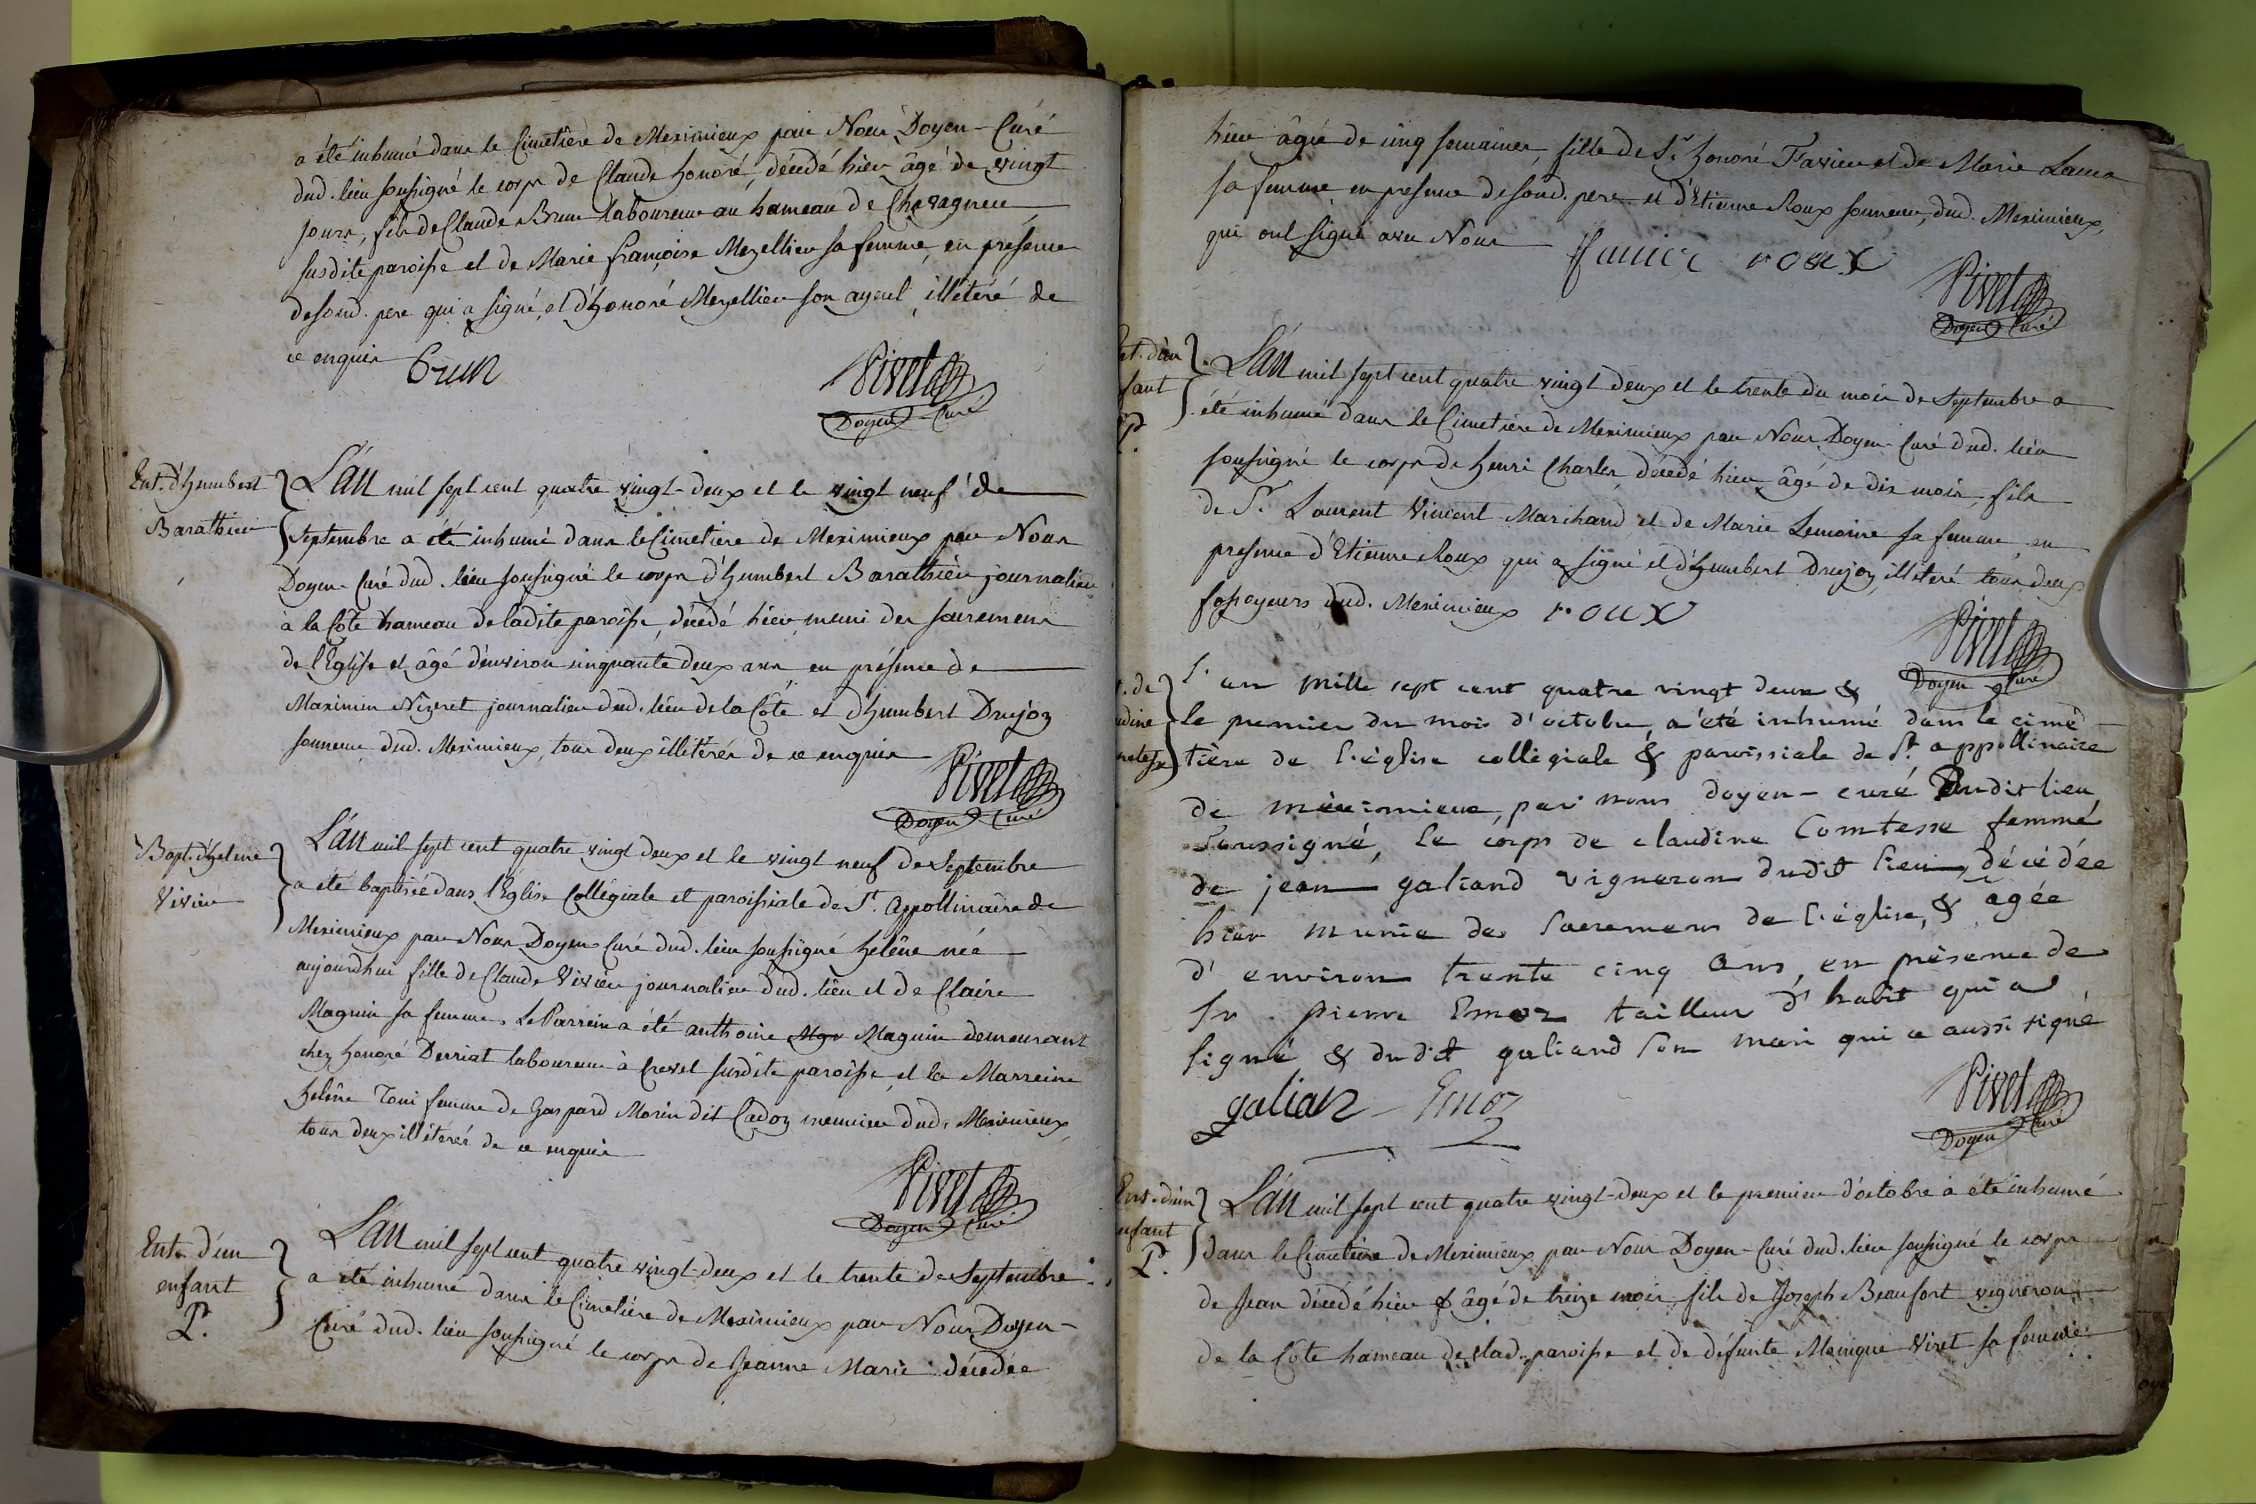 a été inhumé dans le Cimetière de Meximieux par Nous Doyen-Curé
dud. lieu soussigné le corps de Claude honoré, décédé hier âgé de vingt
jours, fils de Claude Brun laboureur au hameau de Chavagneu
susdite paroisse et de Marie françoise Mezellier sa femme, en présence
desond. pere qui a signé, et d'honoré Mezellier son ayeul, illétéré de
ce enquis
brun
Pivet
Doyen Curé
Ent. d'humbert
Barathieu
L'an mil sept cent quatre vingt-deux et le vingt neuf de
Septembre a été inhumé dans le Cimetière de Meximieux par Nous
Doyen-Curé dud. lieu soussigné le corps d'humbert Barathieu journalier
a la Côte hameau de ladite paroisse, décédé hier muni des sacremens
de l'Eglise et âgé d'environ cinquante deux ans en présence de
Maximin Nizeret journalier dud. lieu de la Côte et d'humbert Drujoz
sonneur dud. Meximieux, tous deux illétérés de ce enquis
Pivet
Doyen Curé
Bapt. d'helene
Vivier
L'an mil sept cent quatre vingt deux et le vingt neuf de Septembre
a été baptisée dans l'Eglise Collégiale et paroissiale de St. Appollinaire de
Meximieux par Nous Doyen Curé dud. lieu soussigné helêne née
aujourdhui fille de Claude Vivier journalier dud. lieu et de Claire
Magnin sa femme. Le Parrein a été anthoine Magnin demeurant
chez honoré Derriat laboureur à Crevel susdite paroisse, et la Marreine
helêne Toni femme de Gaspard Morin dit Cadoz meunier dud. Meximieux,
tous deux illétérés de ce enquis
Pivet
Doyen Curé
Ent. d'un
enfant
P.
L'an mil sept cent quatre vingt-deux et le trente de Septembre
a été inhumé dans le Cimetière de Meximieux par Nous Doyen-
Curé dud. lieu soussigné le corps de Jeanne Marie décédée
hier âgée de cinq semaines, fille de Sr. honoré Favier et de Marie
sa femme en presence desond. pere et d'Etienne Roux sonneur, dud. Meximieux,
qui ont signé avec Nous
favier roux
Pivet
Doyen Curé
d'un
fant
P.
L'an mil sept cent quatre vingt deux et le trente du mois de Septembre a
été inhumé dans le Cimetière de Meximieux par Nous Doyen-Curé dud. lieu
soussigné le corps de henri Charles, décédé hier âgé de dix mois, fils
de Sr. Laurent Vincent Marchand et de Marie Lemoine sa femme, en
presence d'Etienne Roux qui a signé et d'humbert Drujoz, illétéré tous deux
fossoyeurs dud. Meximieux
roux
Pivet
Doyen Curé
de
udine
mtesse
L'an mille sept cent quatre vingt deux &
le premier du mois d'octobre, a été inhumé dans le cimé-
tière de l'église collégiale & paroissiale de St. appollinaire
de méximieux, par nous doyen-curé Dudit lieu
soussigné, le corps de claudine Comtesse femme
de jean galiand vigneron dudit lieu, décédée
hier munie des Sacremens de l'église, & agée
d'environ trente cinq ans, en présence de
Sr. pierre Emoz tailleur d'habit qui a
signé & dudit galiand son mari qui a aussi signé
galian Emoz
Pivet
Doyen Curé
Ent. d'un
enfant
P.
L'an mil sept cent quatre vingt-deux et le premier d'octobre a été inhumé
dans le Cimetière de Meximieux par Nous Doyen-Curé dud. lieu soussigné le corps
de Jean décédé hier & âgé de treize mois fils de Joseph Beaufort vigneron
de la Côte hameau de lad. paroisse et de défunte Monique Viret sa femme